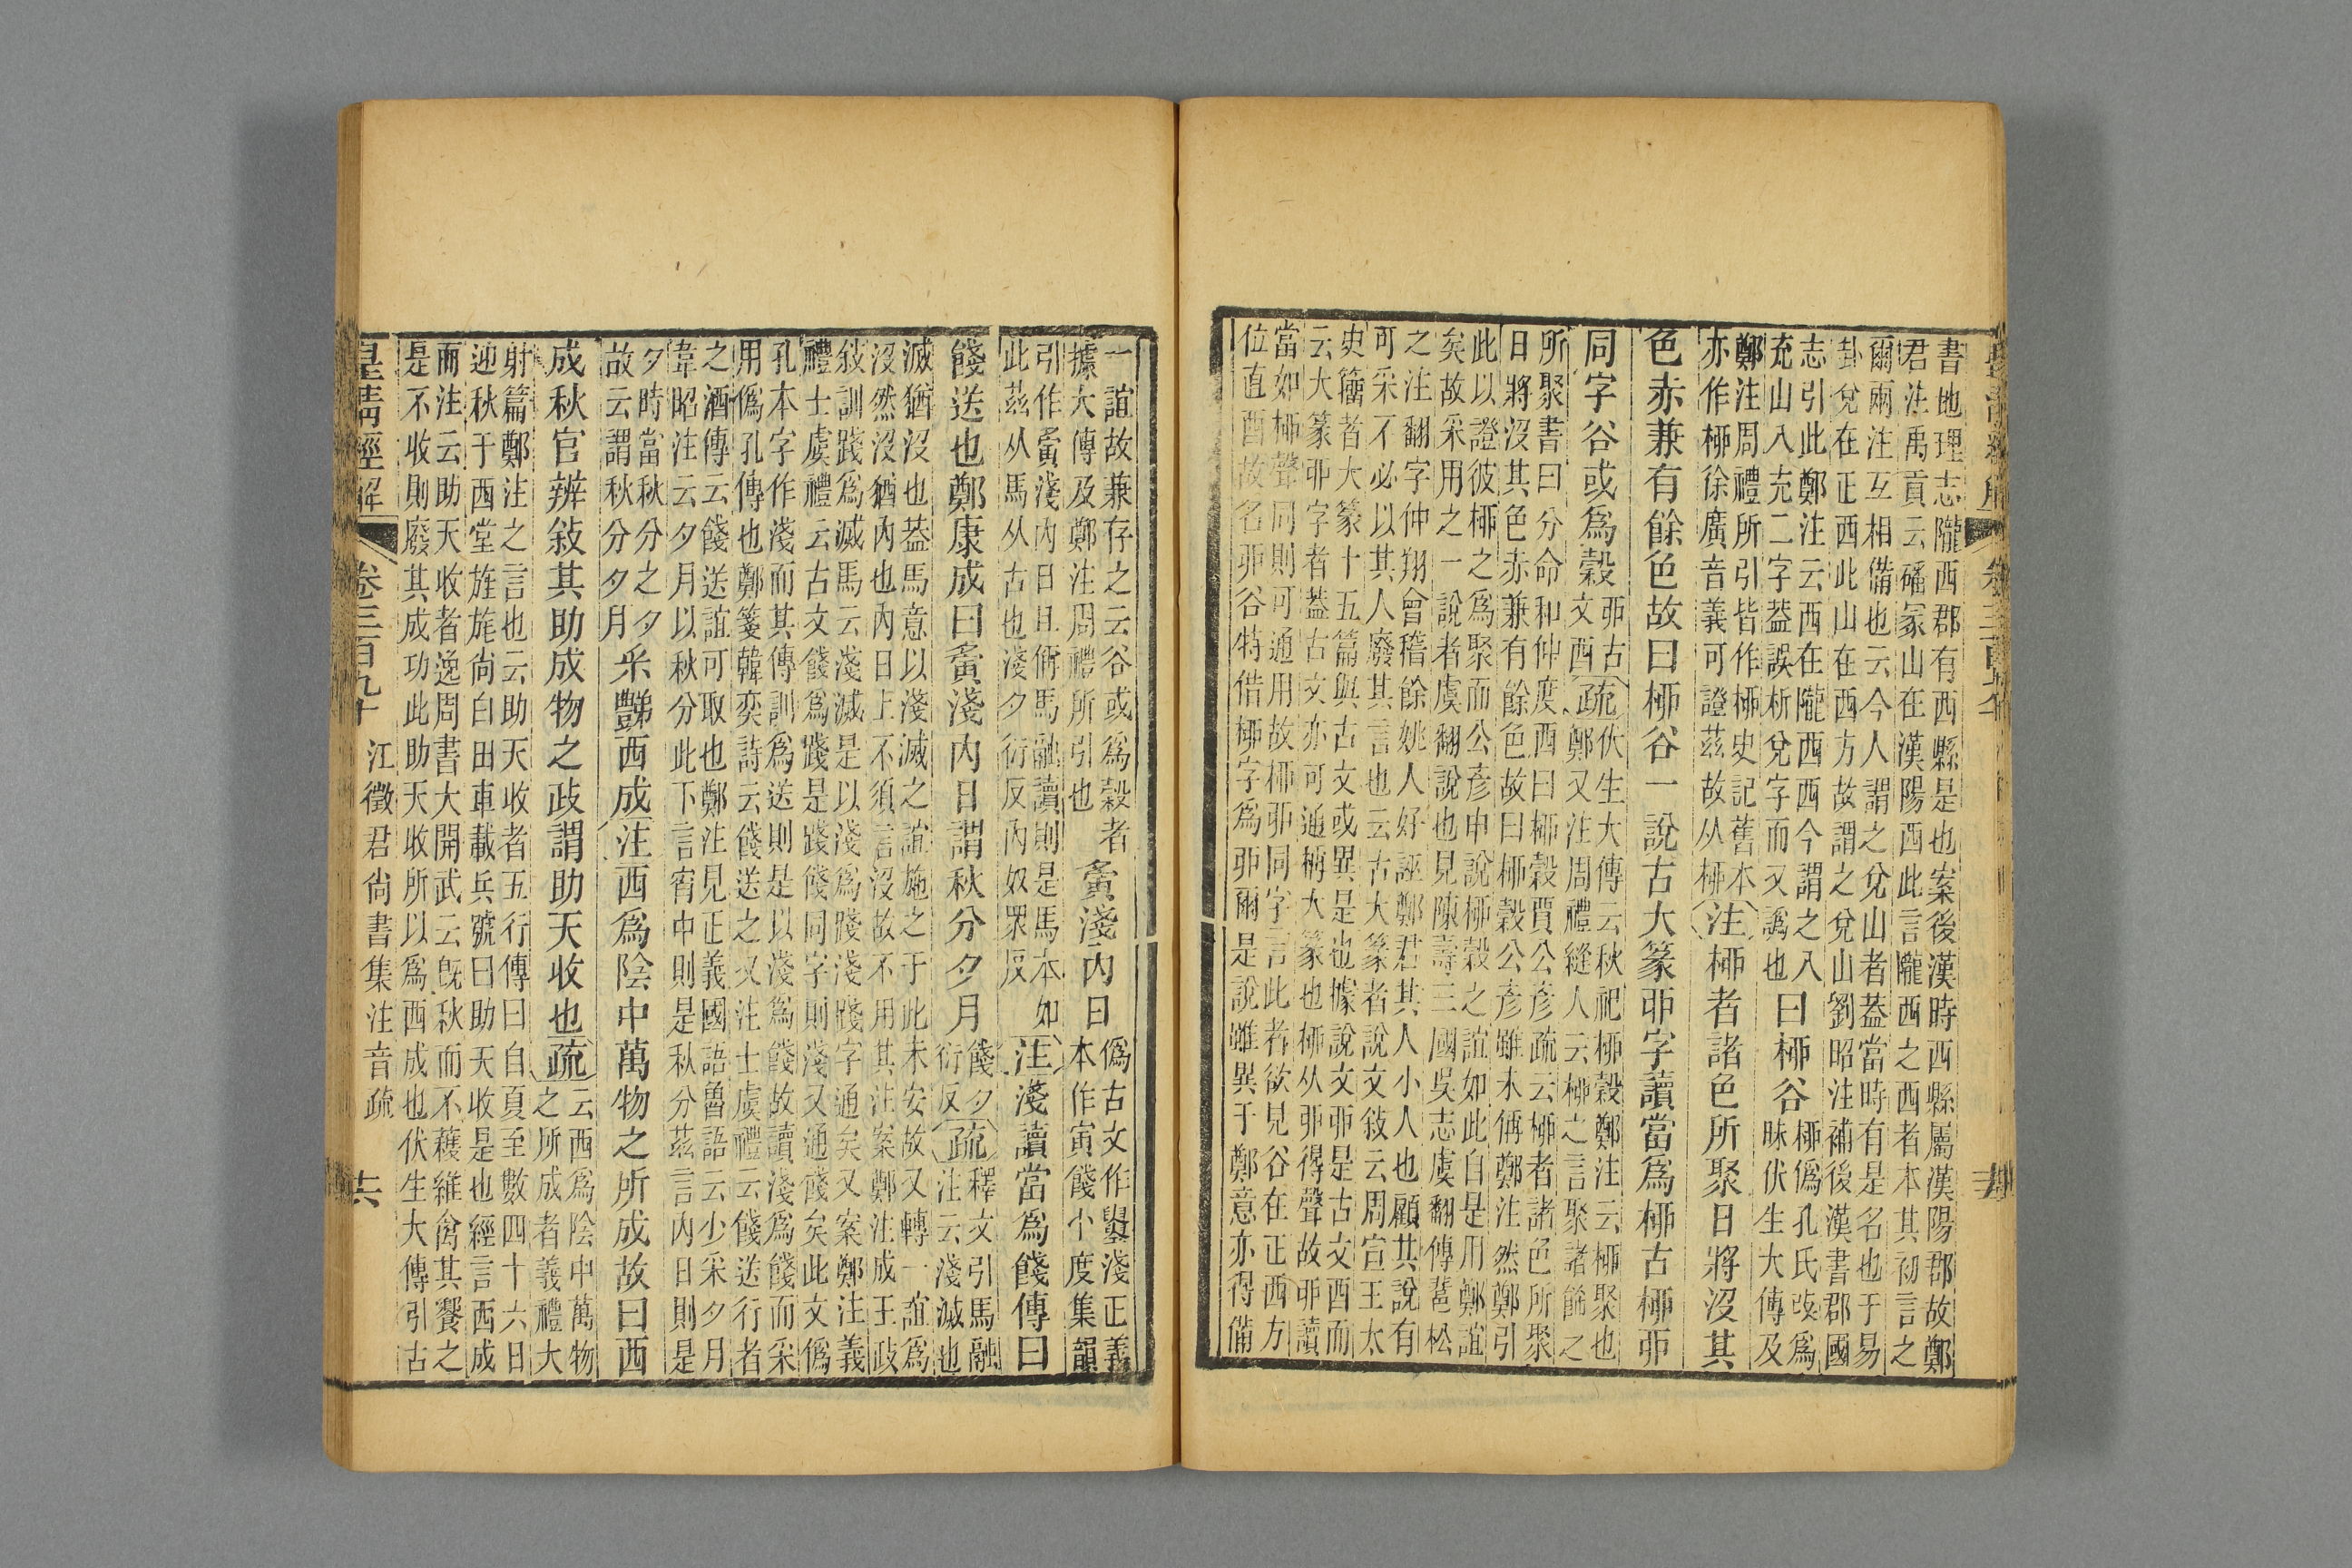 書地理志隴西郡有西縣是也案後漢時西縣屬漢陽郡故鄭
君注禹貢云嶓冢山在漢陽西此言隴西之西者本其初言之
爾兩注互相備也云今人謂之兌山者蓋當時有是名也于易
卦兌在正西此山在西方故謂之兌山劉昭注補後漢書郡國
志引此鄭注云西在隴西西今謂之入
充山入充二字葢誤析兌字而又譌也
曰桺谷
桺僞孔氏改爲
昧伏生大傳及
鄭注周禮所引皆作桺史記舊本
亦作桺徐廣音義可證茲故从桺
注桺者諸色所聚日將沒其
色赤兼有餘色故曰桺谷一說古大篆丣字讀當爲桺古桺丣
同字谷或爲穀
丣古
文酉
疏
伏生大傳云秋祀桺穀鄭注云桺聚也
鄭又注周禮縫人云桺之言聚諸飾之
所聚書曰分命和仲度西曰桺穀賈公彥疏云桺者諸色所聚
日將沒其色赤兼有餘色故曰桺穀公彥雖未偁鄭注然鄭引
此以證彼桺之爲聚而公彥申說桺穀之誼如此自是用鄭誼
矣故采用之一說者虞翻說也見陳壽三國吳志虞翻傳裴松
之注翻字仲翔會稽餘姚人好誣鄭君其人小人也顧其說有
可采不必以其人廢其言也云古大篆者說文敍云周宣王太
史籒者大篆十五篇與古文或異是也據說文丣是古文酉而
云大篆丣字者葢古文亦可通稱大篆也桺从丣得聲故丣讀
當如桺聲同則可通用故桺丣同字言此者欲見谷在正西方
位直酉故名丣谷特借桺字爲丣爾是說雖異于鄭意亦得備
一誼故兼存之云谷或爲穀者
據大傳及鄭注周禮所引也
夤淺內日
僞古文作㽙淺正義
本作寅餞小度集韻
引作夤淺內日旦偁馬融讀則是馬本如
此茲从馬从古也淺夕衍反內奴眔反
注淺讀當爲餞傳曰
餞送也鄭康成曰夤淺內日謂秋分夕月
餞夕
衍反
疏
釋文引馬融
注云淺滅也
滅猶沒也葢馬意以淺滅之誼施之于此未安故又轉一誼爲
沒然沒猶內也內日上不須言沒故不用其注案鄭注成王政
敍訓踐爲滅馬云淺滅是以淺爲踐淺踐字通矣又案鄭注義
禮士虞禮云古文餞爲踐是踐餞同字則淺又通餞矣此文僞
孔本字作淺而其傳訓爲送則是以淺爲餞故讀淺爲餞而采
用僞孔傳也鄭箋韓奕詩云餞送之又注士虞禮云餞送行者
之酒傳云餞送誼可取也鄭注見正義國語魯語云少采夕月
韋昭注云夕月以秋分此下言宵中則是秋分茲言內日則是
夕時當秋分之夕
故云謂秋分夕月
釆豑西成
注西爲陰中萬物之所成故曰西
成秋官辨敍其助成物之政謂助天收也
疏
云西爲陰中萬物
之所成者義禮大
射篇鄭注之言也云助天收者五行傳曰自夏至數四十六日
迎秋于西堂旌旄尙白田車載兵號曰助天收是也經言西成
而注云助天收者逸周書大開武云旣秋而不穫維禽其饗之
是不收則廢其成功此助天收所以爲西成也伏生大傳引古
皇淸經解
卷三百九十
江徵君尙書集注音疏
六